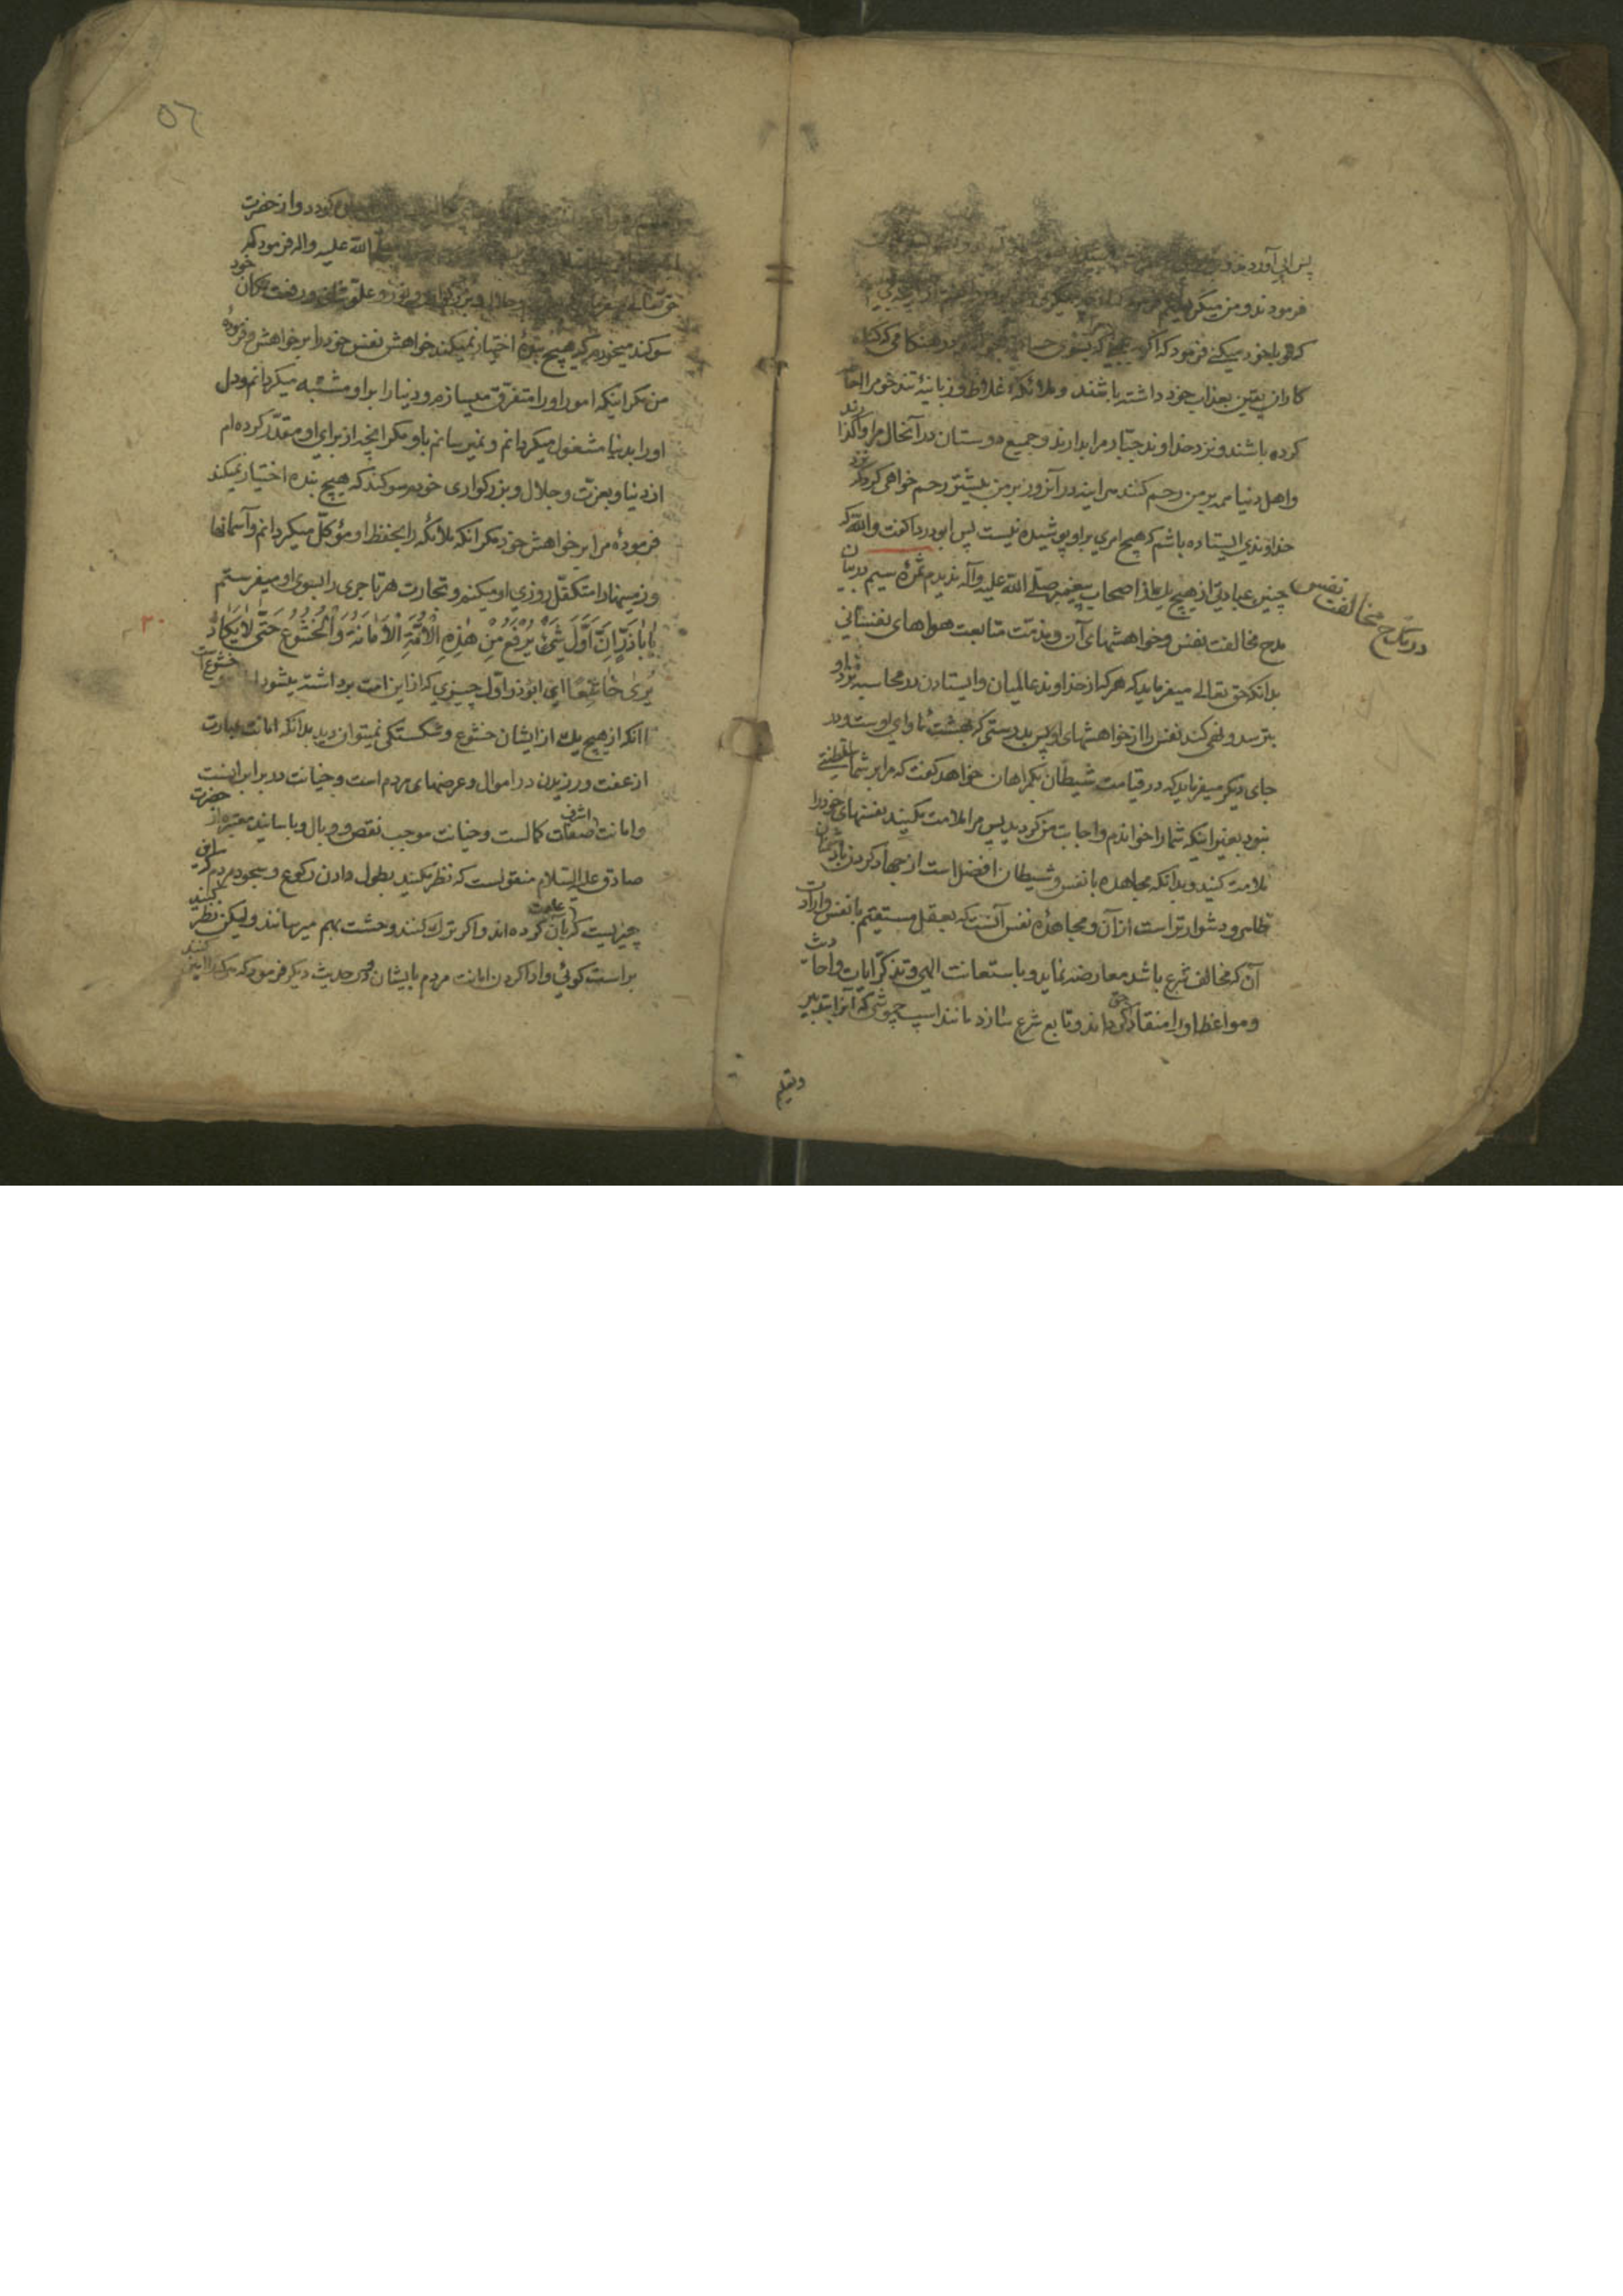 پس آبی آورد
فرمودند و من میگریستم
که تو با خود میکنی فرمود که اگر در هنگامی که گناه
کاران یقین بعذاب خود داشته باشند و ملائکهٔ غلاظ و زبانیهٔ تندخو مرا احاطه
کرده باشند و نزد خداوند جبار مرا بدارند و جمیع دوستان در آنحال مرا واگذارند
و اهل دنیا همه بر من رحم کنند هر آینه در آنروز بر من بیشتر رحم خواهی کرد که نزد
خداوندی ایستاده باشم که هیچ امری بر او پوشیده نیست پس ابودردا گفت والله که
چنین عبادتی از هیچ یک از اصحاب پیغمبر صلی الله علیه وآله ندیدم ثمرهٔ سیم در بیان
در مدح مخالفت نفس
مدح مخالفت نفس و خواهشهای آن و مذمت متابعت هواهای نفسانی
بدانکه حق تعالی میفرماید که هر که از خداوند عالمیان و ایستادن در محاسبه نزد او
بترسد و نهی کند نفس را از خواهشهای او پس بدرستی که بهشت ماوای اوست و در
جای دیگر میفرماید که در قیامت شیطان بگمراهان خواهد گفت که مرا بر شما سلطنتی
نبود بغیر اینکه شما را خواندم و اجابت من کردید پس مرا ملامت مکنید نفسهای خود را
ملامت کنید و بدانکه مجاهده با نفس و شیطان افضل است از جهاد کردن با دشمنان
ظاهر و دشوارتر است از آن و مجاهدهٔ نفس آنست که بعقل مستقیم با نفس و ارادات
آن که مخالف شرع باشد معارضه نماید و باستعانت الهی و تذکر آیات و احادیث
و مواعظ او را منقاد حق گرداند و تابع شرع سازد مانند اسب چموشی که آنرا بتدبیر
وتعلیم
٥٦
گردد و از حضرت
الله علیه واله فرمود که
حق تعالی میفرماید وجلال و بزرگواری و نور و علو شان و رفعت مکان خود
سوگند میخورم که هیچ بندهٔ اختیار نمیکند خواهش نفس خود را بر خواهش و فرمودهٔ
من مگر اینکه امور او را متفرق میسازم و دنیا را بر او مشتبه میگردانم و دل
او را بدنیا مشغول میگردانم و نمیرسانم باو مگر آنچه از برای او مقدر کرده ام
از دنیا و بعزت و جلال و بزرگواری خودم سوگند که هیچ بنده اختیار نمیکند
فرمودهٔ مرا بر خواهش خود مگر آنکه ملائکه را بحفظ او مؤکل میگردانم و آسمانها
و زمینها را متکفل روزی او میکنم و تجارت هر تاجری را بسوی او میفرستم
٢٠
یٰا اَبٰاذَرٍّ اِنَّ اَوَّلَ شَیْءٍ یُرْفَعُ مِنْ هٰذِهِ الْاُمَّةِ الْاَمٰانَةُ وَالْخُشُوعُ حَتّٰی لٰا یَکٰادُ
یُرٰی خٰاشِعًا ای ابوذر اول چیزی که از این امت برداشته میشود امانت و خشوع است
تا آنکه از هیچ یک از ایشان خشوع و شکستگی نمیتوان دید بدانکه امانت عبارت
از عفت ورزیدن در اموال و عرضهای مردم است و خیانت در برابر اینست
و امانت اشرف صفات کمالست و خیانت موجب نقص و وبال و باسانید معتبره از حضرت
صادق علیه السلام منقولست که نظر مکنید بطول دادن رکوع و سجود مردم که این
چیزیست که بآن عادت کرده اند و اگر ترک کنند وحشت بهم میرسانند ولیکن نظر کنید
براست گوئی و ادا کردن امانت مردم بایشان و در حدیث دیگر فرمود که